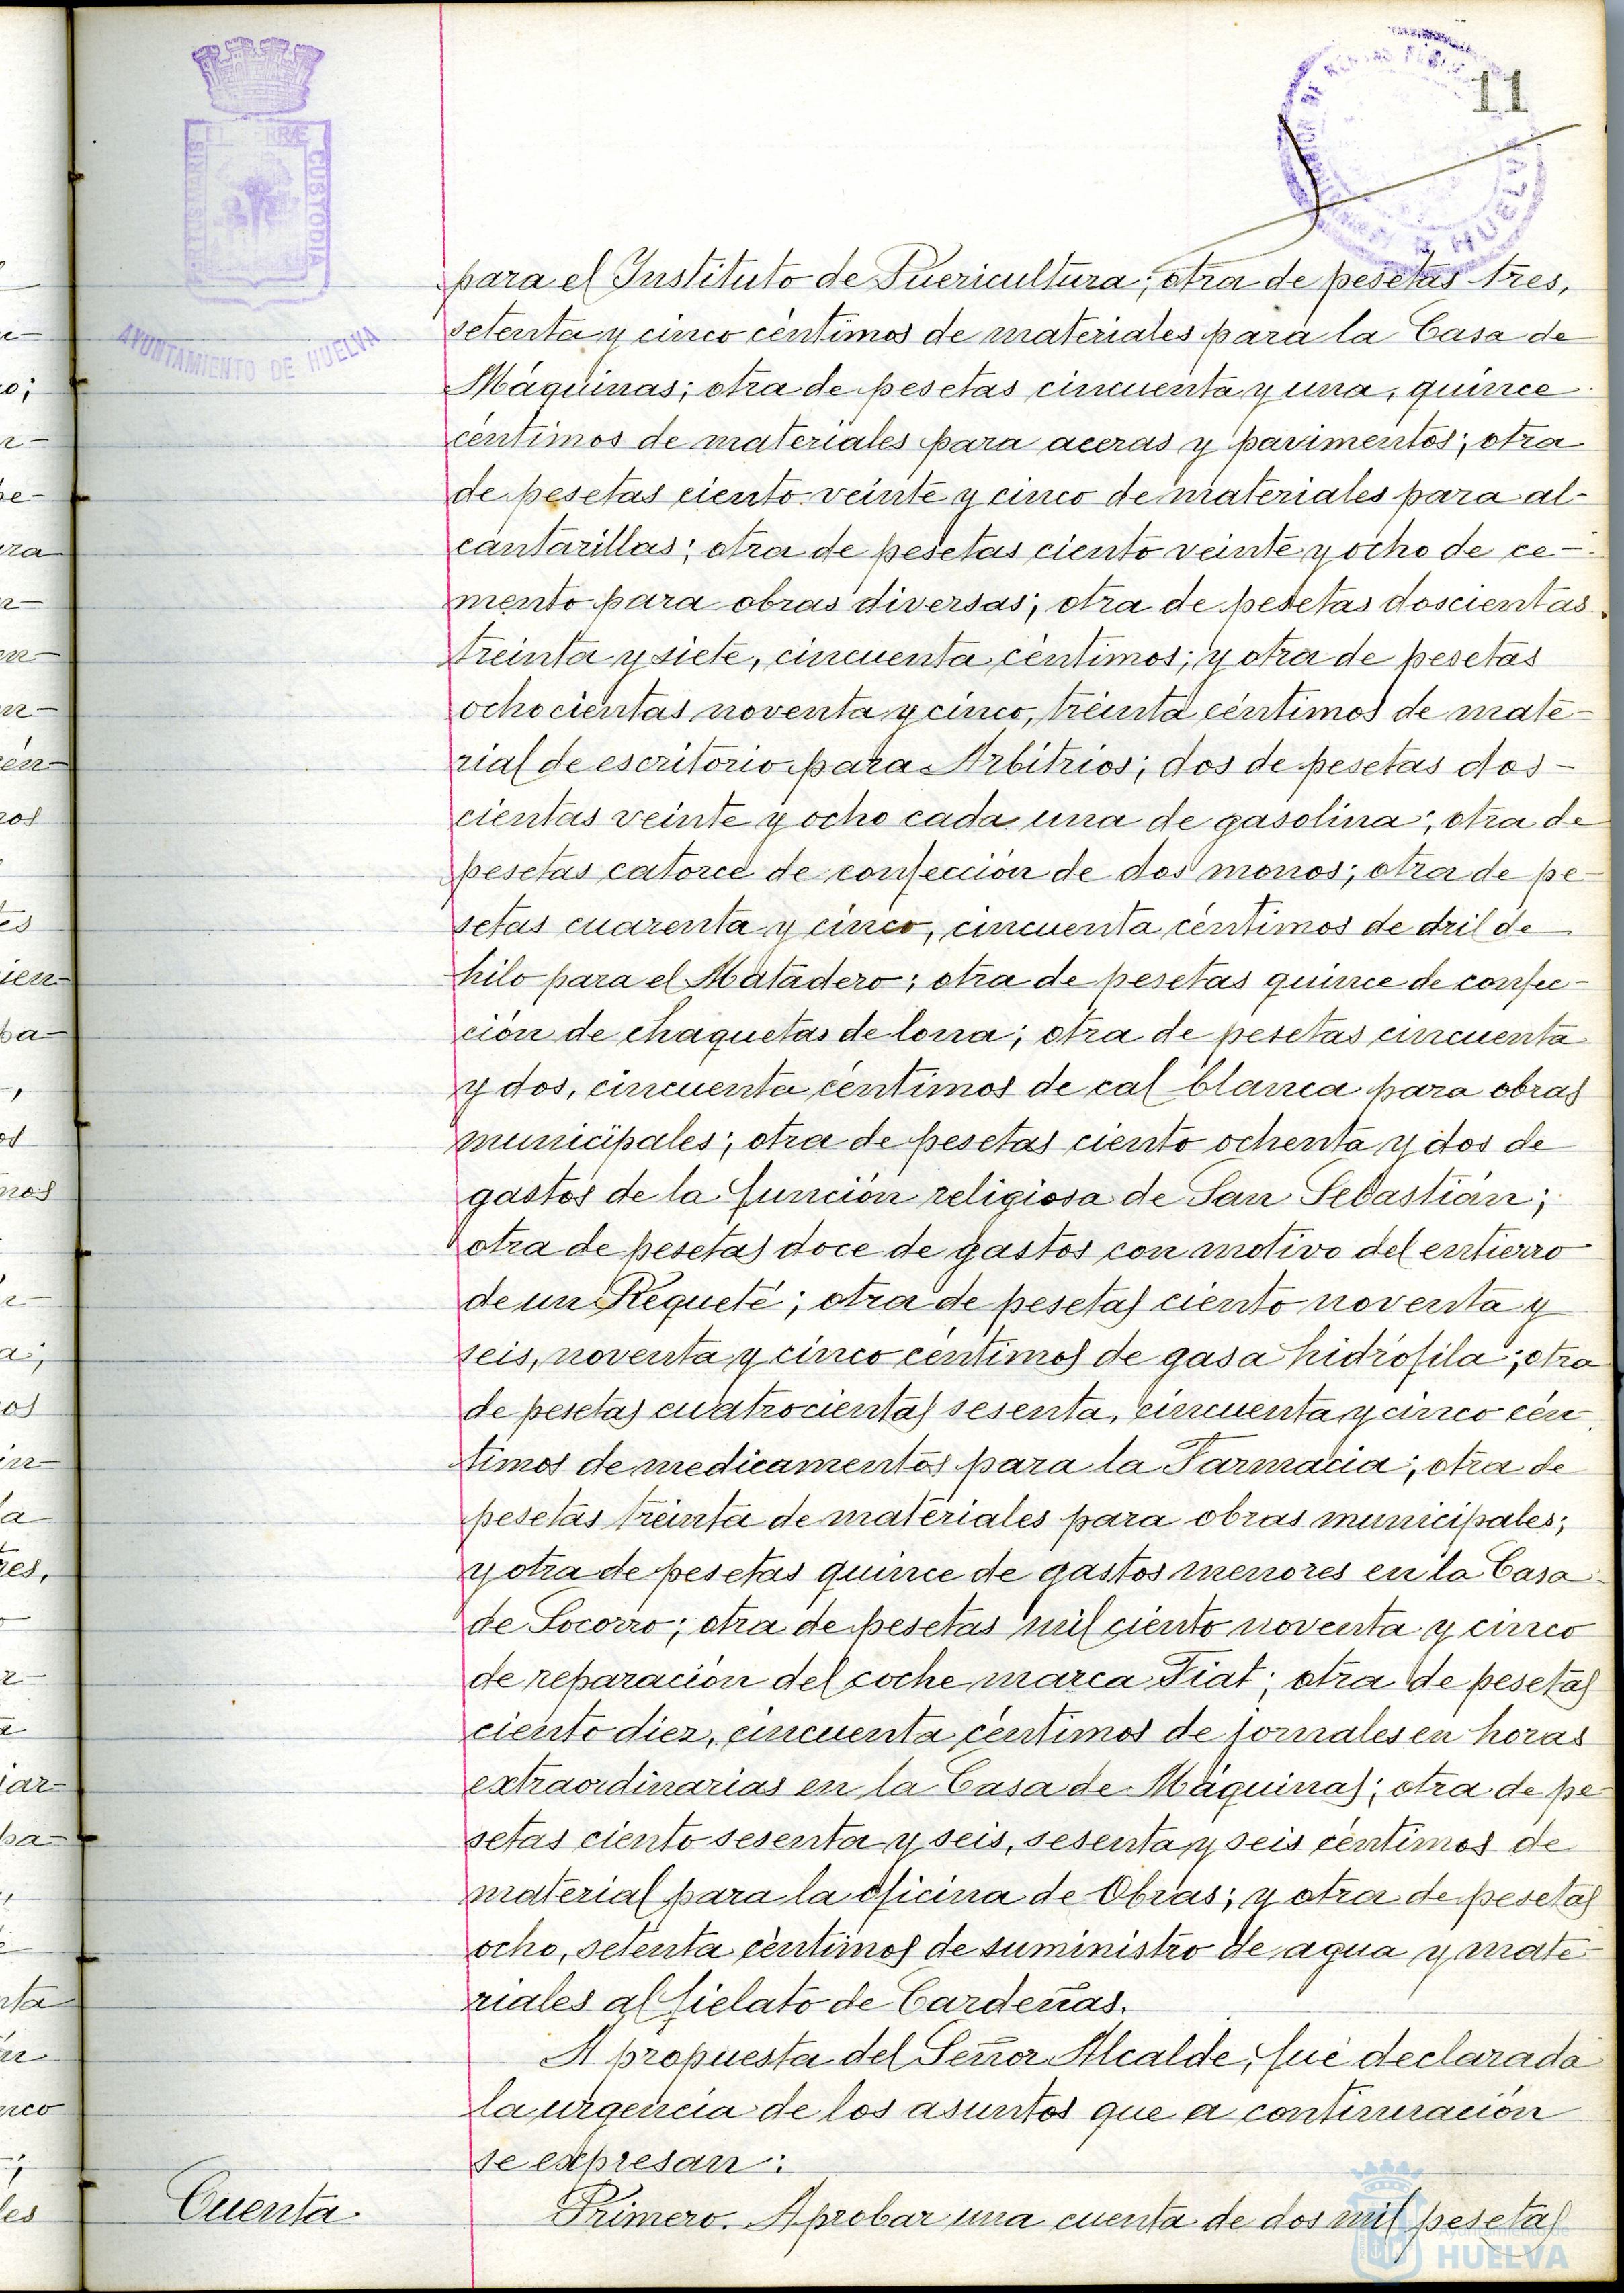 11
PORTUS MARIS ET TERRÆ CUSTODIA
AYUNTAMIENTO DE HUELVA
HUELVA
para el Instituto de Puericultura; otra de pesetas tres,
setenta y cinco céntimos de materiales para la Casa de
Máquinas; otra de pesetas cincuenta y una, quince
céntimos de materiales para aceras y pavimentos; otra
de pesetas ciento veinte y cinco de materiales para al-
cantarillas; otra de pesetas ciento veinte y ocho de ce-
mento para obras diversas; otra de pesetas doscientas
treinta y siete, cincuenta céntimos; y otra de pesetas
ochocientas noventa y cinco, treinta céntimos de mate-
rial de escritorio para Arbitrios; dos de pesetas dos-
cientas veinte y ocho cada una de gasolina; otra de
pesetas catorce de confección de dos monos; otra de pe-
setas cuarenta y cinco, cincuenta céntimos de dril de
hilo para el Matadero; otra de pesetas quince de confec-
ción de chaquetas de lona; otra de pesetas cincuenta
y dos, cincuenta céntimos de cal blanca para obras
municipales; otra de pesetas ciento ochenta y dos de
gastos de la función religiosa de San Sebastián;
otra de pesetas doce de gastos con motivo del entierro
de un Requeté; otra de pesetas ciento noventa y
seis, noventa y cinco céntimos de gasa hidrófila; otra
de pesetas cuatrocientas sesenta, cincuenta y cinco cén
timos de medicamentos para la Farmacia; otra de
pesetas treinta de materiales para obras municipales;
y otra de pesetas quince de gastos menores en la Casa
de Socorro; otra de pesetas mil ciento noventa y cinco
de reparación del coche marca Fiat; otra de pesetas
ciento diez, cincuenta céntimos de jornales en horas
extraordinarias en la Casa de Máquinas; otra de pe-
setas ciento sesenta y seis, sesenta y seis céntimos de
material para la oficina de Obras; y otra de pesetas
ocho, setenta céntimos de suministro de agua y mate-
riales al fielato de Cardeñas.
A propuesta del Señor Alcalde, fué declarada
la urgencia de los asuntos que a continuación
se expresan:
Cuenta
Primero. Aprobar una cuenta de dos mil pesetas
Ayuntamiento de
HUELVA